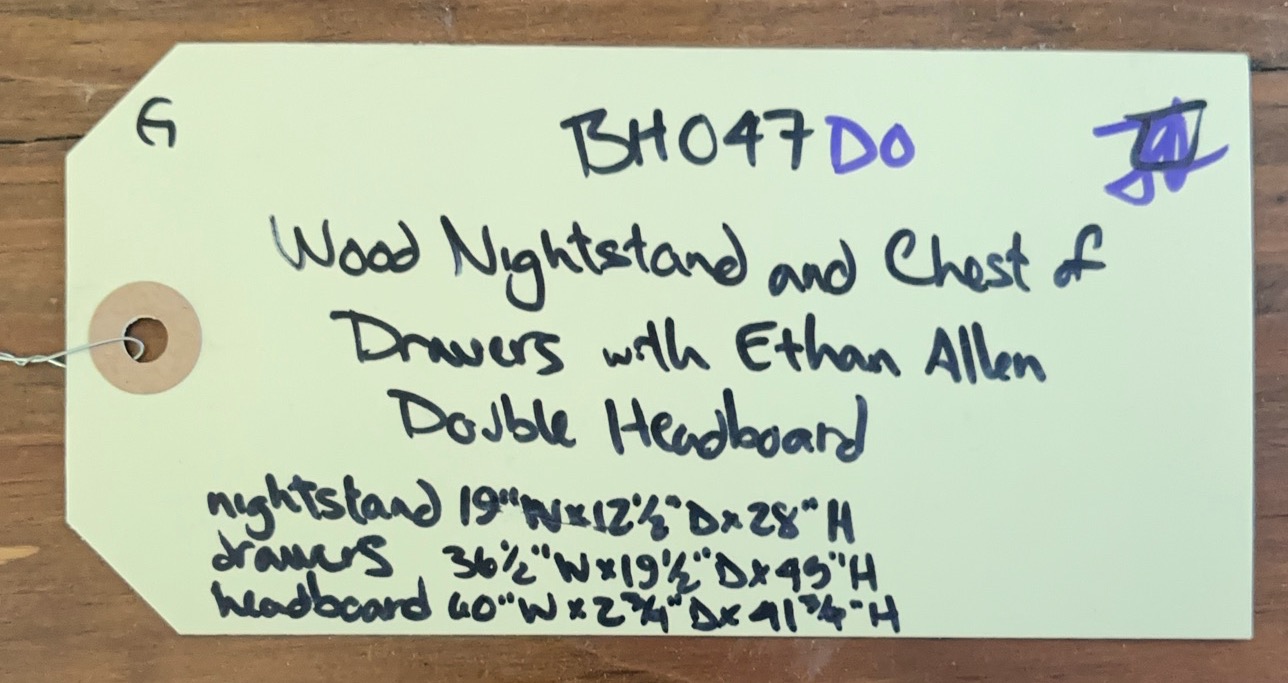 G
BH047 DO
Wood Nightstand and Chest of
Drawers with Ethan Allen
Double Headboard
nightstand 19"W x 12½"D x 28"H
drawers 36½"W x 19½"D x 45"H
headboard 60"W x 2¾"D x 41¾"H